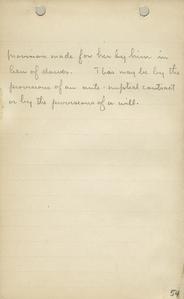 provision made for her by him in
lieu of dower. This may be by the
provisions of an ante-nuptial contract
or by the provisions of a will.
54